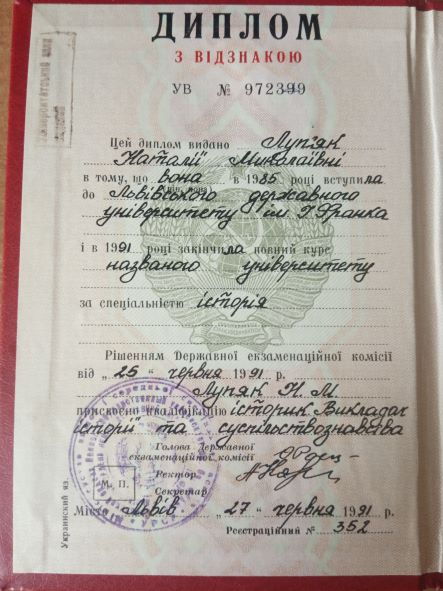 ДИПЛОМ
З ВІДЗНАКОЮ
УВ № 972399
Цей диплом видано Лупяк
Наталії Миколаївні
в тому, що вона в 1985 році вступила
до Львівського державного
університету ім. І. Франка
і в 1991 році закінчила повний курс
названого університету
за спеціальністю історія
Рішенням Державної екзаменаційної комісії
від „25“ червня 1991 р.
Лупяк Н. М.
присвоєно кваліфікацію історик. Викладач
історії та суспільствознавства
Голова Державної
екзаменаційної комісії
Ректор
М. П.
Секретар
Місто Львів „27“ червня 1991 р.
Реєстраційний № 352
Украинский яз.
УРСР